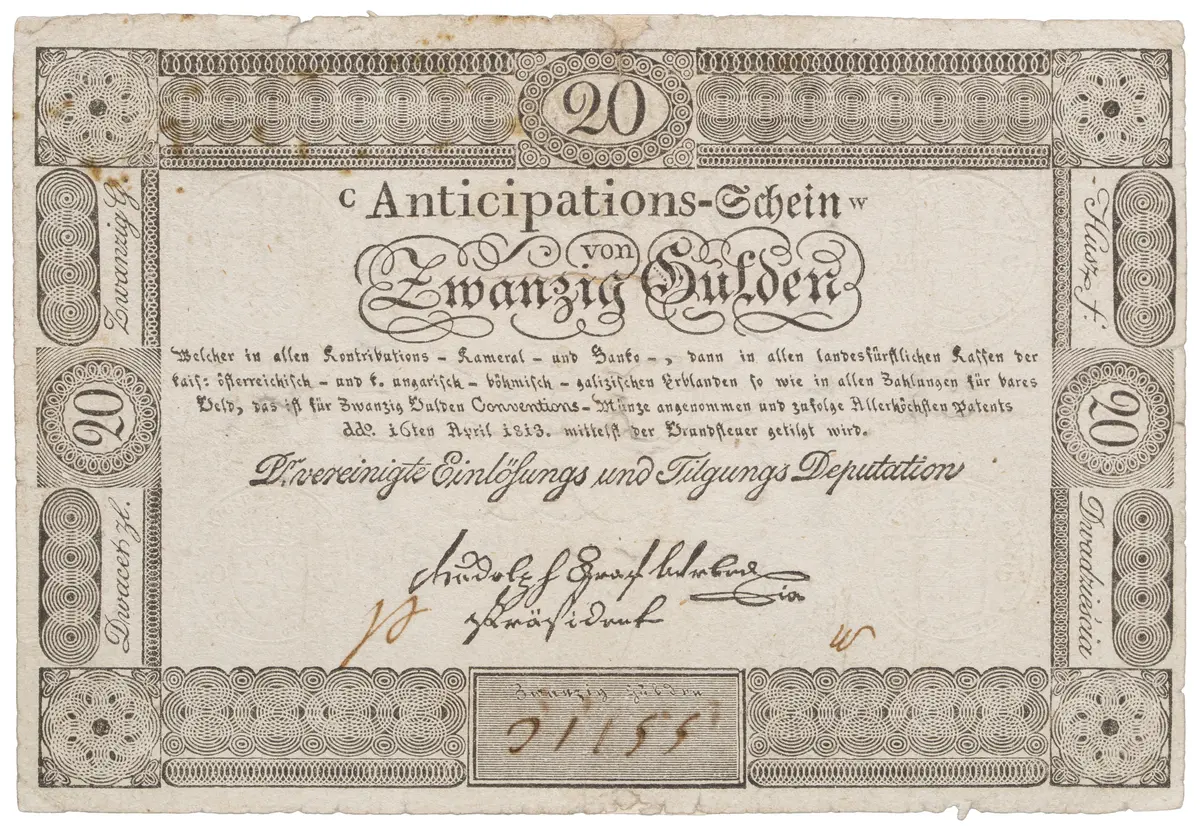 20
c Anticipations-Schein w
von
Zwanzig Gulden
Welcher in allen Kontributions - Kameral - und Banko - , dann in allen landesfürstlichen Kassen der
kais: österreichisch - und k. ungarisch - böhmisch - galizischen Erblanden so wie in allen Zahlungen für bares
Geld, das ist für Zwanzig Gulden Conventions - Münze angenommen und zufolge Allerhöchsten Patents
ddo. 16ten April 1813. mittelst der Grundsteuer getilgt wird.
Dr. vereinigte Einlösungs und Tilgungs Deputation
Rudolph Graf Wrbna
Präsident
w
Zwanzig Gulden
01155
Zwanzig G.
20
Dwacet zl.
Husz f.
20
Dwadzieścia